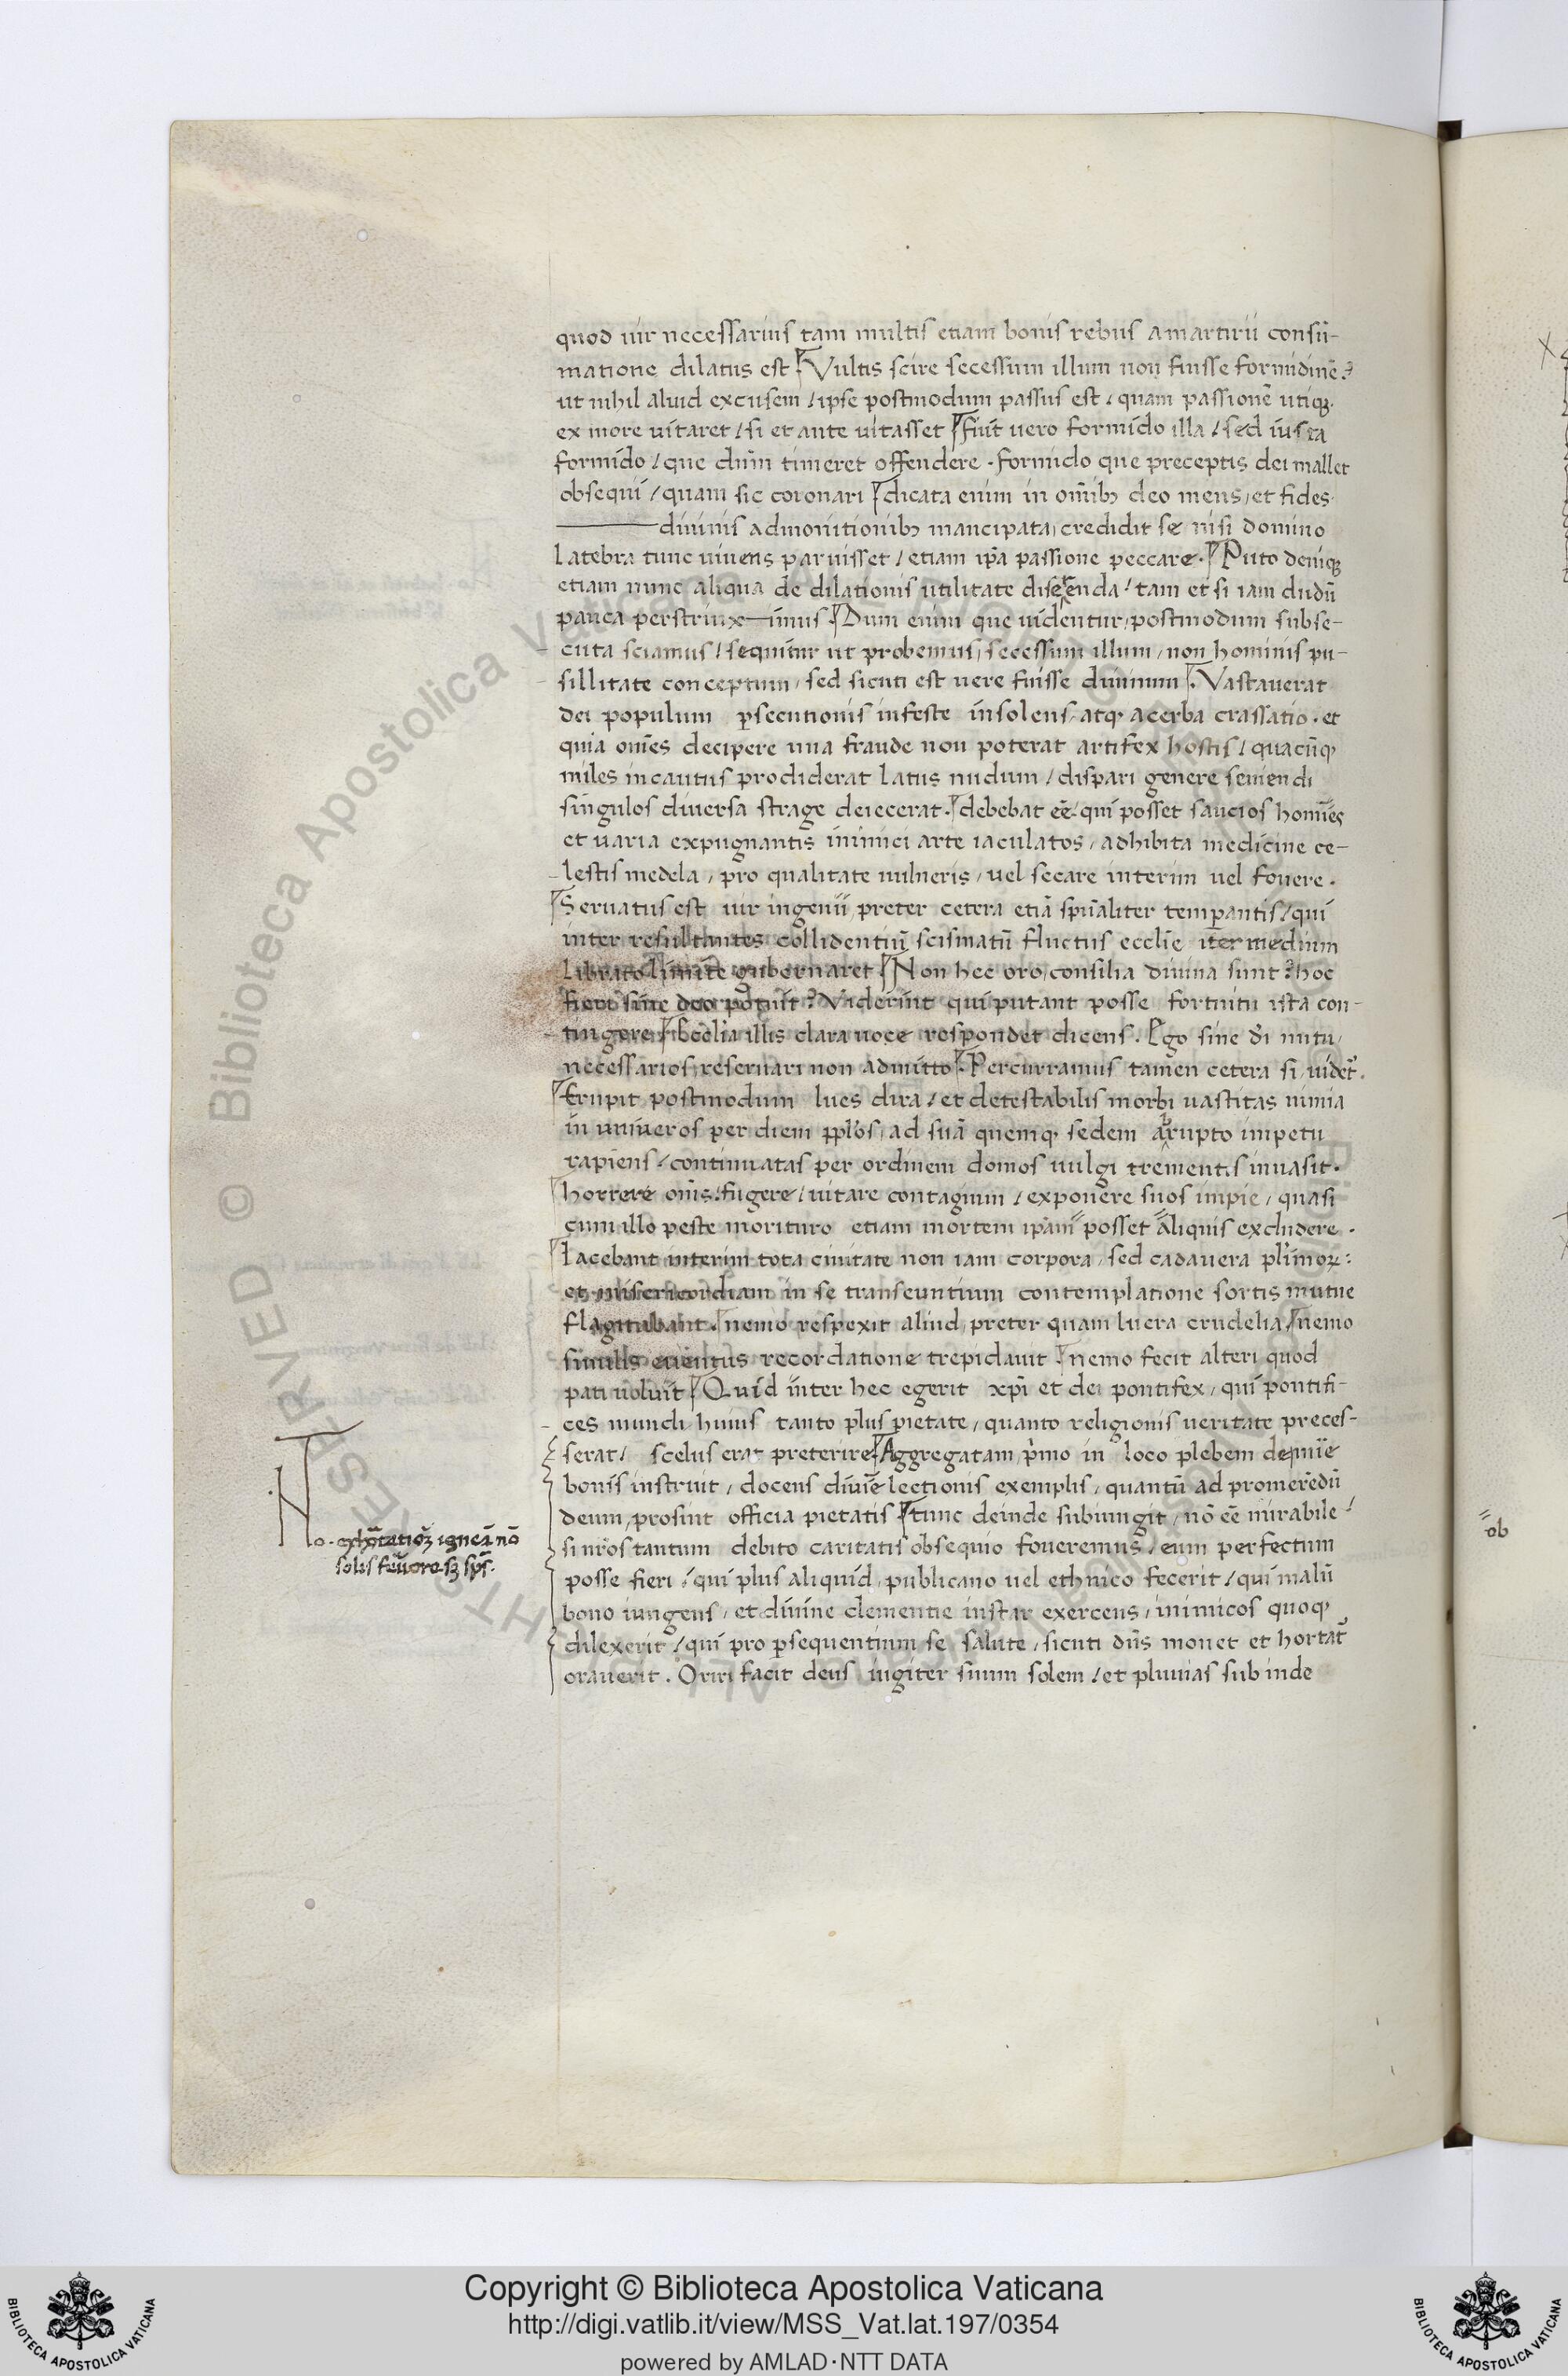 quod uir necessarius tam multis etiam bonis rebus a martirii consū-
matione dilatus est. Vultis scire secessum illum non fuisse formidinē?
ut nihil aliud excusem / ipse postmodum passus est / quam passionē utiqꝫ.
ex more uitaret / si et ante uitasset fuit uero formido illa / sed iusta
formido / que dnm̄ timeret offendere. formido que preceptis dei mallet
obsequi / quam sic coronari dicata enim in om̄ibꝫ deo mens, et fides.
diuinis admonitionibꝫ mancipata, credidit se nisi domino
latebra tunc uiuens paruisset / etiam ip̄a passione peccare. Puto deniqꝫ
etiam nunc aliqua de dilationis utilitate diserenda / tam et si iam dudū
pauca perstrinx—imus. Dum enim que uidentur, postmodum subse-
cuta sciamus / sequitur ut probemus, secessum illum, non hominis pu-
sillitate conceptum, sed sicuti est uere fuisse diuinum. Vastauerat
dei populum ꝑsecutionis infeste insolens, atqꝫ acerba crassatio. et
quia om̄es decipere una fraude non poterat artifex hostis / quacūqꝫ
miles incautus prodiderat latus nudum / dispari genere seuiendi
singulos diuersa strage deiecerat. debebat eē. qui posset saucios homīes
et uaria expugnantis inimici arte iaculatos, adhibita medicine ce-
lestis medela, pro qualitate uulneris, uel secare interim uel fouere.
Seruatus est uir ingenii preter cetera etiā sp̄ualiter temꝑantis / qui
inter resultantes collidentiū scismatū fluctus eccl̄ie iter medium
librato limite gubernaret. Non hec oro, consilia diuina sunt? hoc
fieri sine deo potuit? Viderint qui putant posse fortuitu ista con-
tingere. Eccl̄ia illis clara uoce respondet dicens. Ego sine d̄i nutu,
necessarios, reseruari non admitto. Percurramus tamen cetera si uidet᷑.
Erupit postmodum lues dira / et detestabilis morbi uastitas nimia
in uniueros per diem pp̄los, ad suā quemqꝫ sedem abrupto impetu
rapiens / continuatas per ordinem domos uulgi trementis inuasit.
horrere om̄s / fugere / uitare contagium / exponere suos impie, quasi
cum illo peste morituro etiam mortem ip̄am posset aliquis excludere.
Iacebant interim tota ciuitate non iam corpora, sed cadauera pl̄imoꝝ:
et misericordiam in se transeuntium contemplatione sortis mutue
flagitabant. nemo respexit aliud, preter quam lucra crudelia, nemo
similis euentus recordatione trepidauit. nemo fecit alteri quod
pati uoluit. Quid inter hec egerit xp̄i et dei pontifex, qui pontifi-
ces mundi huius tanto plus pietate, quanto religionis ueritate preces-
serat / scelus erat preterire. Aggregatam p̄mo in loco plebem de mīe
bonis instruit, docens diuīe lectionis exemplis, quantū ad promerēdū
deum, prosint officia pietatis. tunc deinde subiungit, nō eē mirabile /
si nr̄os tantum debito caritatis obsequio foueremus, eum perfectum
posse fieri / qui plus aliquid, publicano uel ethnico fecerit / qui malū
bono iungens, et diuine clementie instar exercens, inimicos quoqꝫ
dilexerit / qui pro ꝑsequentium se salute, sicuti dn̄s monet et hortat᷑
orauerit. Oriri facit deus iugiter suum solem / et pluuias subinde
ob
Copyright © Biblioteca Apostolica Vaticana
http://digi.vatlib.it/view/MSS_Vat.lat.197/0354
powered by AMLAD·NTT DATA
BIBLIOTECA APOSTOLICA VATICANA
BIBLIOTECA APOSTOLICA VATICANA